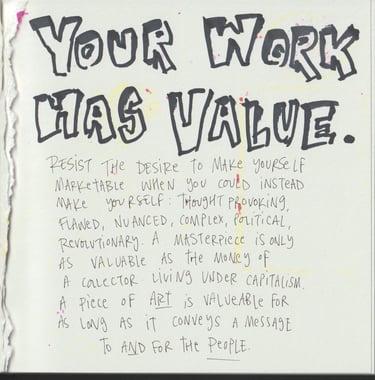 YOUR WORK
HAS VALUE.
RESIST THE DESIRE TO MAKE YOURSELF
MARKETABLE WHEN YOU COULD INSTEAD
MAKE YOURSELF: THOUGHT PROVOKING,
FLAWED, NUANCED, COMPLEX, POLITICAL,
REVOLUTIONARY. A MASTERPIECE IS ONLY
AS VALUABLE AS THE MONEY OF
A COLECTOR LIVING UNDER CAPITALISM.
A PIECE OF ART IS VALUEABLE FOR
AS LONG AS IT CONVEYS A MESSAGE
TO AND FOR THE PEOPLE.